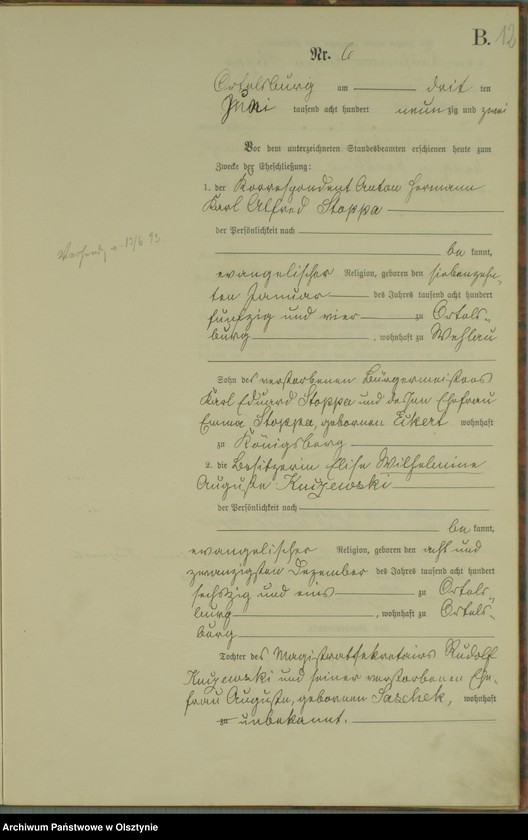 B. 12
Nr. 6
Ortelsburg am dritten
Juni tausend acht hundert neunzig und zwei
Vor dem unterzeichneten Standesbeamten erschienen heute zum
Zwecke der Eheschließung:
1. der Korrespondent Anton Hermann
Karl Alfred Stoppa
der Persönlichkeit nach
be kannt,
evangelischer Religion, geboren den siebenzehn-
ten Januar des Jahres tausend acht hundert
fünfzig und vier zu Ortels-
burg, wohnhaft zu Wehlau
Sohn des verstorbenen Bürgermeisters
Karl Eduard Stoppa und dessen Ehefrau
Emma Stoppa, gebornen Eckert wohnhaft
zu Königsberg
2. die Besitzerin Elise Wilhelmine
Auguste
der Persönlichkeit nach
be kannt,
evangelischer Religion, geboren den acht und
zwanzigsten Dezember des Jahres tausend acht hundert
sechszig und eins zu Ortels-
burg, wohnhaft zu Ortels-
burg
Tochter des Magistratssekretairs Rudolf
und seiner verstorbenen Ehe-
frau Auguste, gebornen Saschek, wohnhaft
zu unbekannt.
Archiwum Państwowe w Olsztynie